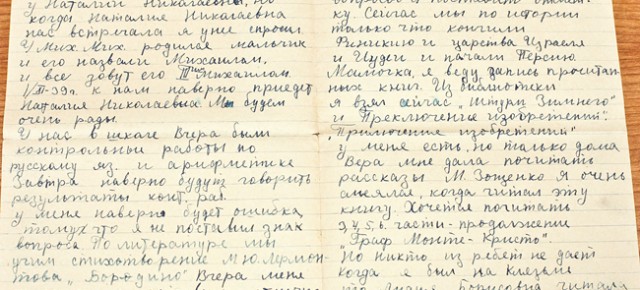 у Наталии Николаевны, но
когда Наталия Николаевна
нас встречала я у нее спросил.
У Мих. Мих. родился мальчик
и его назвали Михаилом,
и все зовут его III Михаилом.
1/III-39 г. к нам наверно приедет
Наталия Николаевна. Мы будем
очень рады.
У нас в школе Вчера были
контрольныи работы по
русскому яз. и арифметике
Завтра наверно будут говорить
результаты конт. раб.
у меня наверно будет ошибка,
потому что я не поставил знак
вопроса. По литературе мы
учим стихотворение М.Ю. Лермон-
това „Бородино" Вчера меня
ку. Сейчас мы по истории
только что кончили
Финикию и царства Израиля
и Иудеи и начали Персию
Мамочка, я веду запись прочитан-
ных книг. Из библиотеки
я взял сейчас „Штурм Зимнего"
и Преключение изобретения".
„Приключение изобретения"
у меня есть, но только дома
Вера мне дала почитать
рассказы М. Зощенко Я очень
смеялся, когда читал эту
книгу. Хочется почитать
3, 4, 5, 6. части - продолжение
„Граф Монте-Кристо".
Но никто из ребят не дает
когда я был на
Борисовна читала